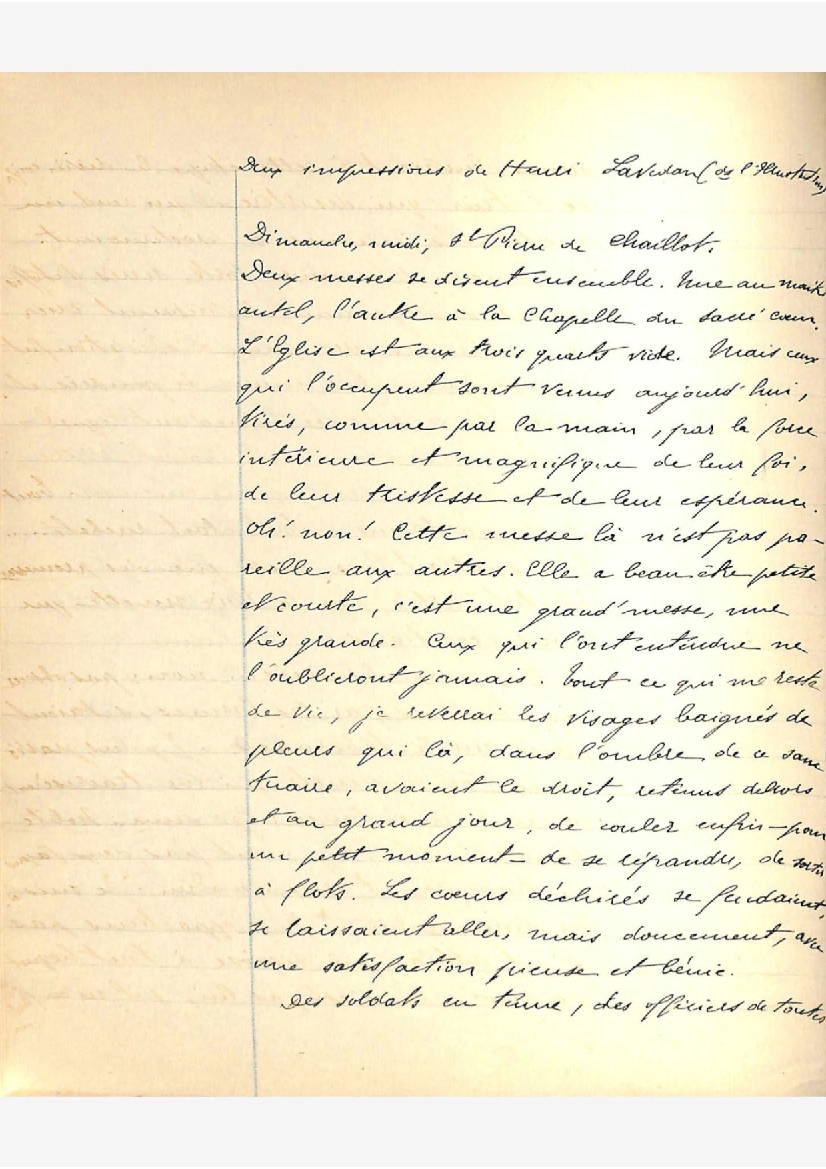 Deux impressions de Henri Lavedan (de l'Illustration)
Dimanche, midi, St Pierre de Chaillot.
Deux messes se disent ensemble. Une au maître
autel, l'autre à la Chapelle du sacré cœur.
L'Eglise est aux trois quarts vide. Mais ceux
qui l'occupent sont venus aujourd'hui,
tirés, comme par la main, par la force
intérieure et magnifique de leur foi,
de leur tristesse et de leur espérance.
Oh! non! Cette messe là n'est pas pa-
reille aux autres. Elle a beau être petite
et courte, c'est une grand'messe, une
très grande. Ceux qui l'ont entendue ne
l'oublieront jamais. Tout ce qui me reste
de vie, je reverrai les visages baignés de
pleurs qui là, dans l'ombre de ce sanc
tuaire, avaient le droit, retenus dehors
et au grand jour, de couler enfin – pour
un petit moment – de se répandre, de sortir
à flots. Les cœurs déchirés se fendaient,
se laissaient aller, mais doucement, avec
une satisfaction pieuse et bénie.
Des soldats en tenue, des officiers de toutes